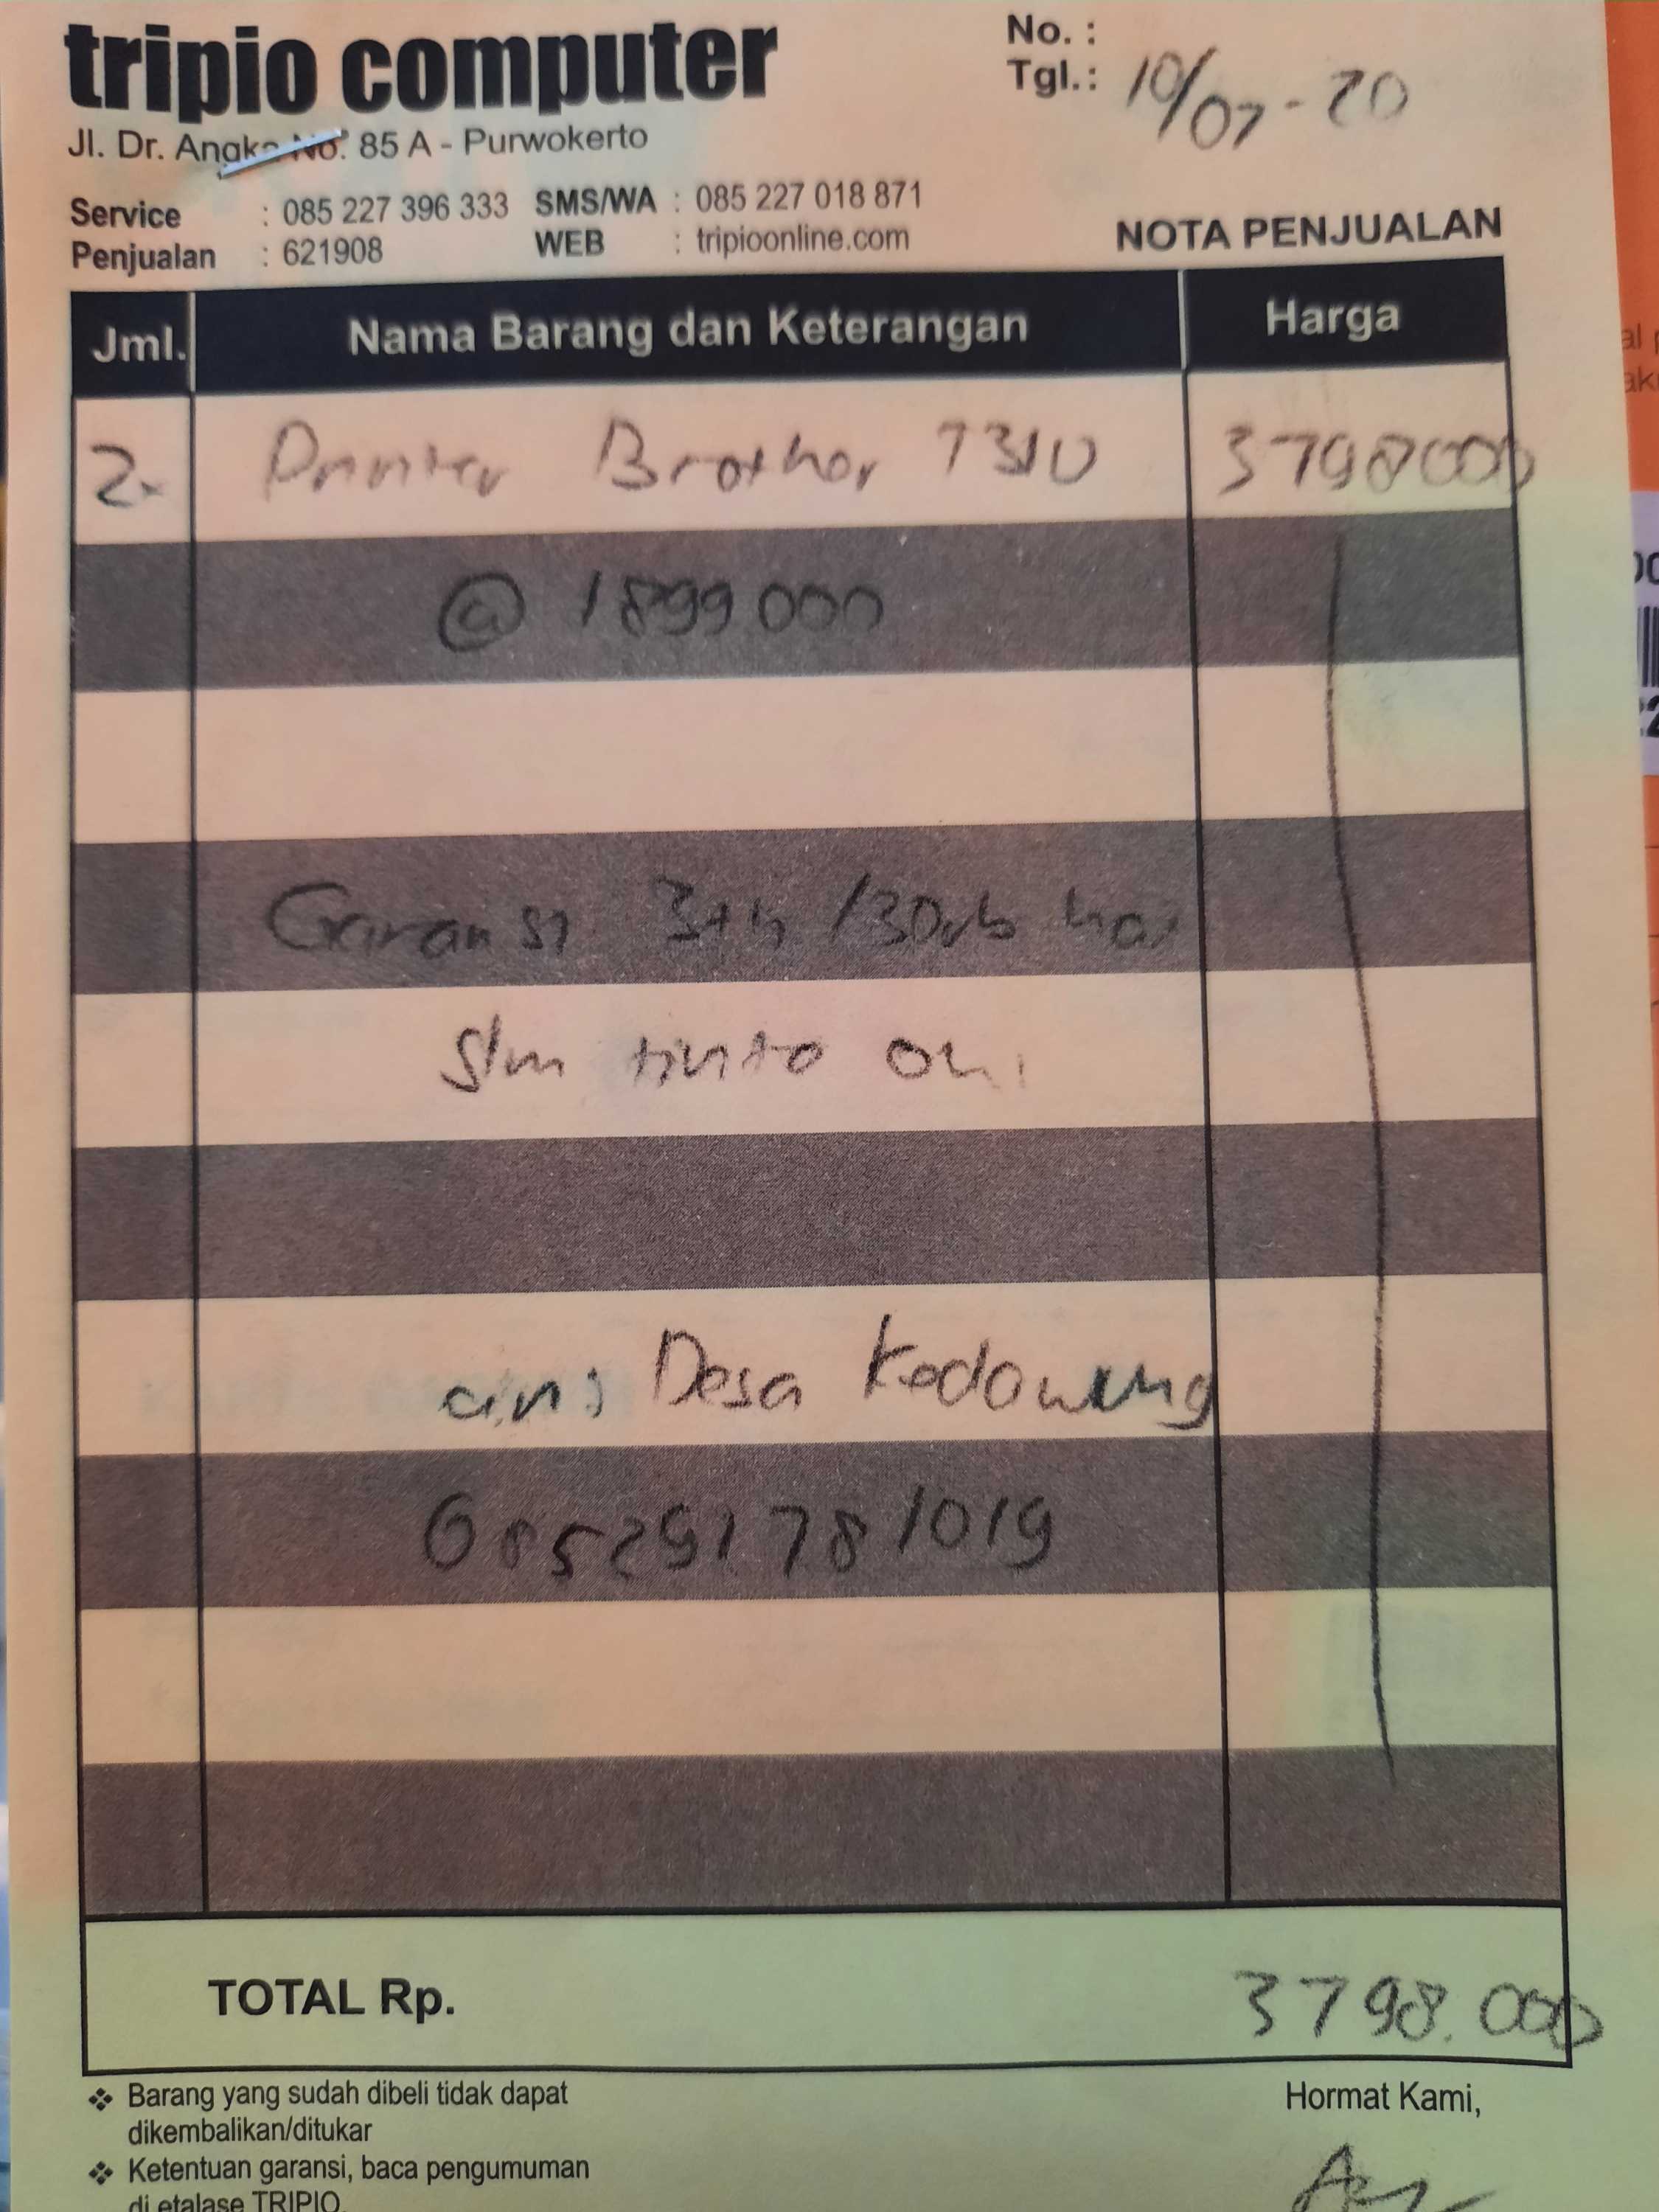 tripio computer
No. :
Tgl.: 10/07-20
Jl. Dr. Angka No. 85 A - Purwokerto
Service : 085 227 396 333 SMS/WA : 085 227 018 871
Penjualan : 621908 WEB : tripioonline.com
NOTA PENJUALAN
Jml. Nama Barang dan Keterangan Harga
2x Printer Brother T310 3798000
@ 1899 000
Garansi 3th /30rb hal
slm tinta ori
an : Desa Kedawung
085291781019
TOTAL Rp. 3798.000
❖ Barang yang sudah dibeli tidak dapat
dikembalikan/ditukar
Hormat Kami,
❖ Ketentuan garansi, baca pengumuman
di etalase TRIPIO.